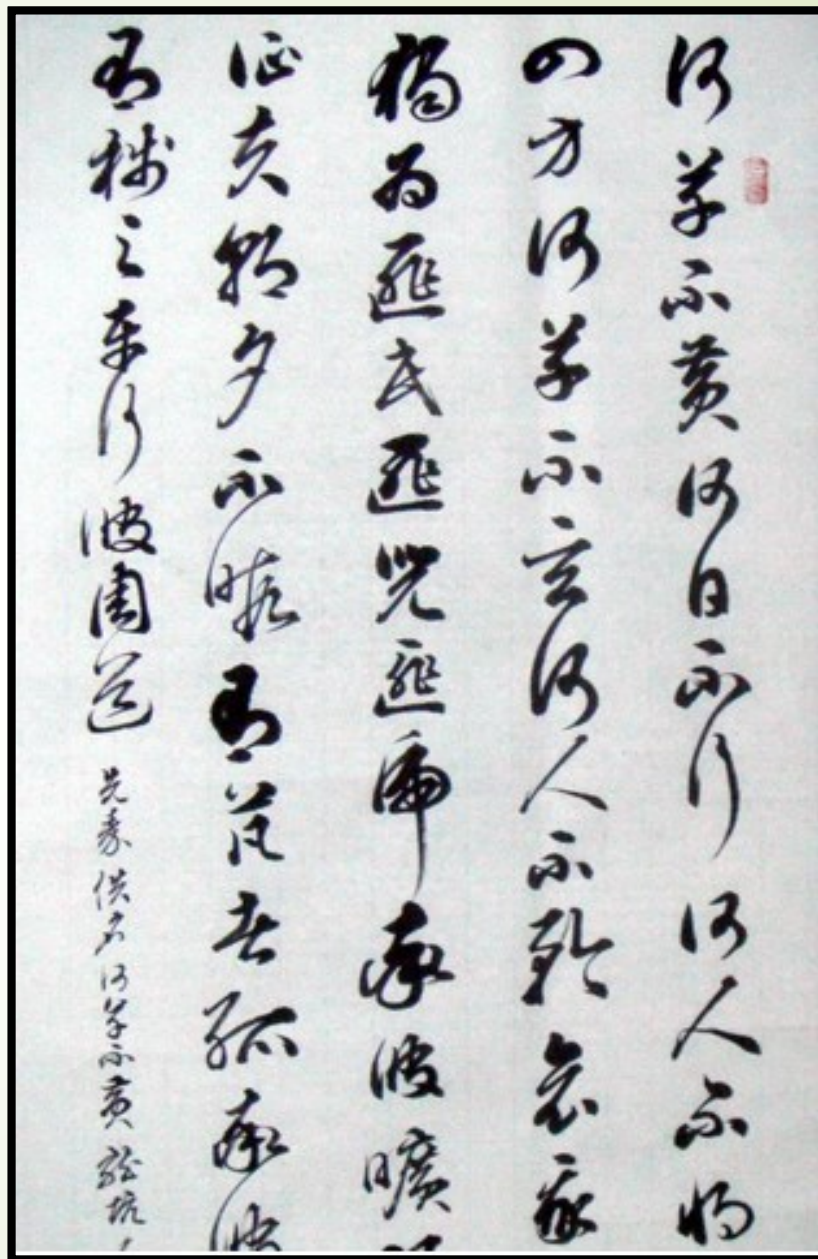 何草不黃何日不行何人不將
四方何草不玄何人不矜哀我
獨為匪民匪兕匪虎率彼曠
征夫朝夕不暇有芃者狐率彼
有棧之車行彼周道
先秦佚名何草不黃